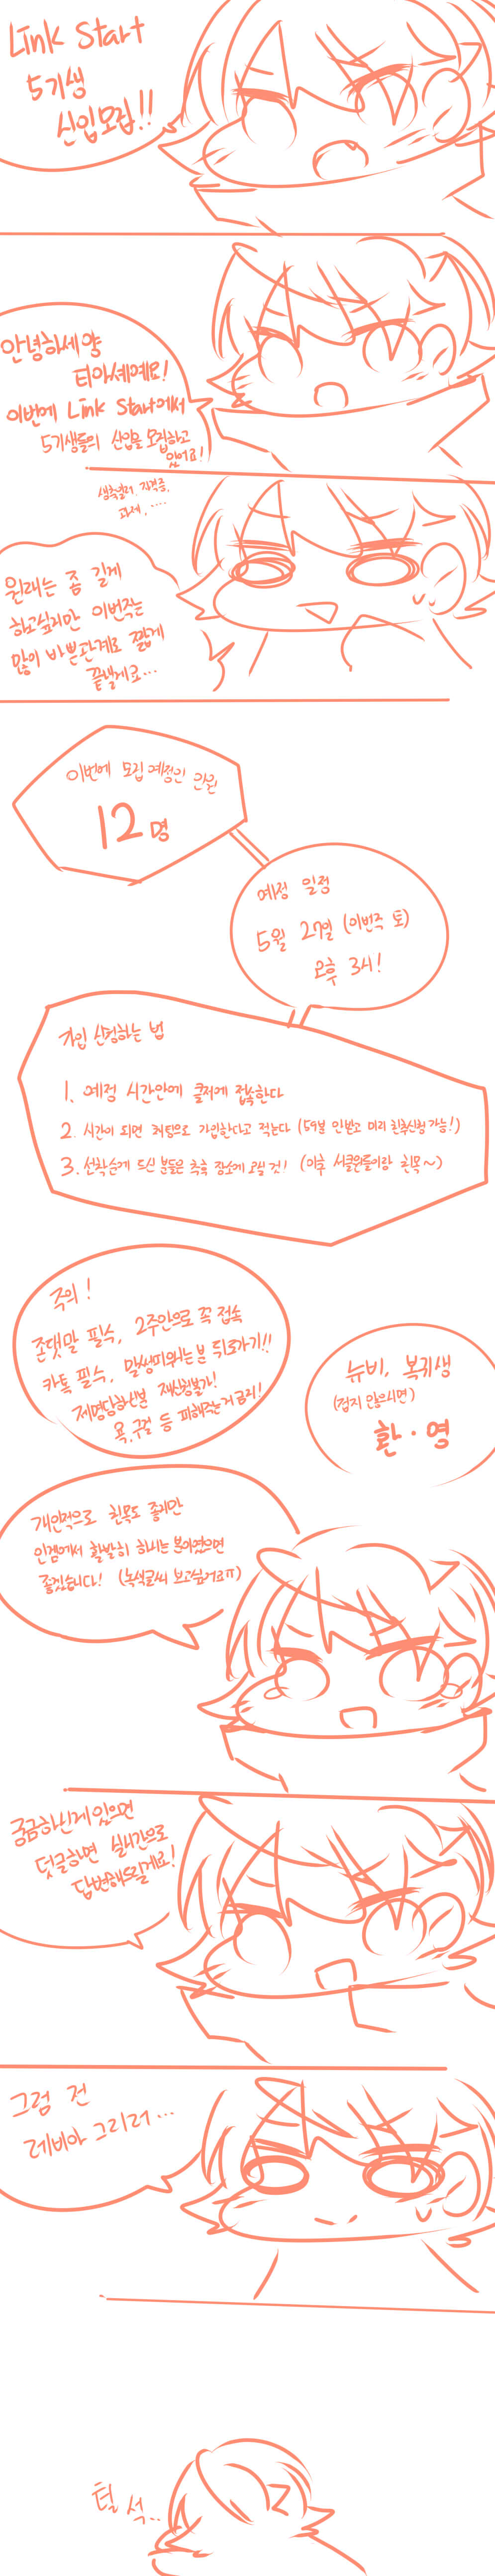 Link Start
5기생
신입모집!!
안녕하세양
티아셰에요!
이번에 Link Start에서
5기생들의 신입을 모집하고
있어요!
자격증,
과제, ....
원래는 좀 길게
하고싶지만 이번주는
많이 바쁜관계로 짧게
끝낼게요...
이번에 모집 예정인 인원
12명
예정 일정
5월 27일 (이번주 토)
오후 3시!
가입 신청하는 법
1. 예정 시간안에 클저에 접속한다
2. 시간이 되면 채팅으로 가입한다고 적는다 (59분 안받고 미리 친추신청 가능!)
3. 선착순에 드신 분들은 축축 장소에 오실 것! (이후 서클원들이랑 친목~)
주의!
존댓말 필수, 2주안으로 꼭 접속
카톡 필수, 말썽피우시는분 뒤로가기!!
제명당하신분 재신청불가!
욕, 구걸 등 피해주는거 금지!
뉴비, 복귀생
(접지 않으시면)
환·영
개인적으로 친목도 좋지만
인겜에서 활발히 하시는 분이였으면
좋겠습니다! (녹색글씨 보고싶어요ㅠ)
궁금하신게 있으면
덧글하면 실시간으로
답변해드릴게요!
그럼 전
레비아 그리러...
털석...